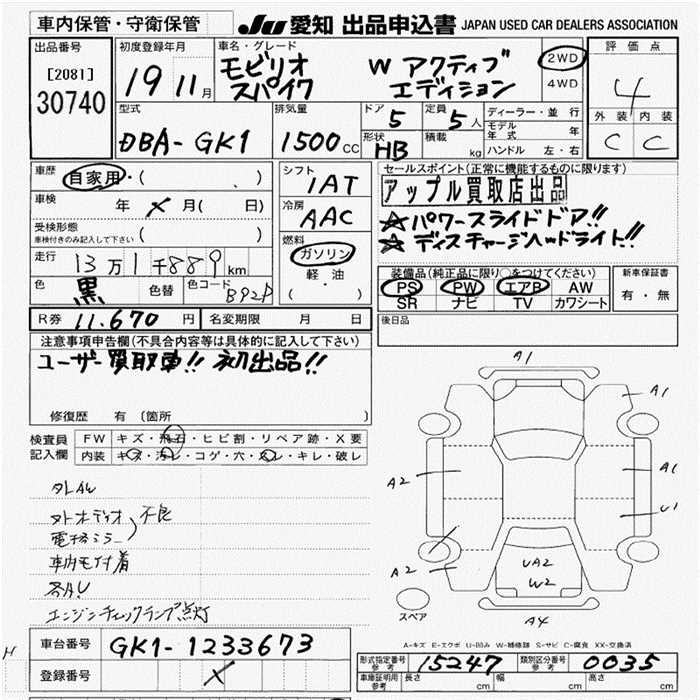 車内保管・守衛保管
JU 愛知 出品申込書 JAPAN USED CAR DEALERS ASSOCIATION
出品番号
[2081]
30740
初度登録年月
19 11月
車名・グレード
モビリオ W アクティブ
スパイク エディション
2WD
4WD
評価点
4
外装 内装
C C
型式
DBA-GK1
排気量
1500cc
ドア
5
定員
5人
形状
HB
積載
kg
ディーラー・並行
モデル年式 年
ハンドル 左・右
車歴
自家用・( )
車検
年 メ 月( 日)
受検形態
車検付きのみ記入して下さい ( )
走行
13万1千889km
色
黒
色替
色コード
B92P
シフト
IAT
冷房
AAC
燃料
ガソリン
軽・油
( )
セールスポイント(正常に機能するものに限ります)
アップル買取店出品
☆パワースライドドア!!
☆ディスチャージヘッドライト!!
装備品(純正品に限り○をつけてください)
PS PW エアB AW
SR ナビ TV カワシート
新車保証書
有・無
後日品
R券 11,670 円
名変期限 月 日
注意事項申告欄(不具合内容等は具体的に記入して下さい)
ユーザー買取車!! 初出品!!
修復歴 有(箇所
検査員
記入欄
FW キズ・飛石・ヒビ割・リペア跡・X要
内装 キズ・汚レ・コゲ・穴・スレ・キレ・破レ
タトオーディオ 不良
電格ミラー
車内モノ付着
エンジンチェックランプ点灯
A1
A1
A2
A1
U1
A2
UA2
W2
A4
スペア
A-キズ E-エクボ U-凹み W-補修跡 S-サビ C-腐食 XX-交換済
車台番号
GK1-1233673
登録番号
メ
H
形式指定番号 参考
15247
類別区分番号 参考
0035
車庫証明用 参考
長さ cm 幅 cm 高さ cm